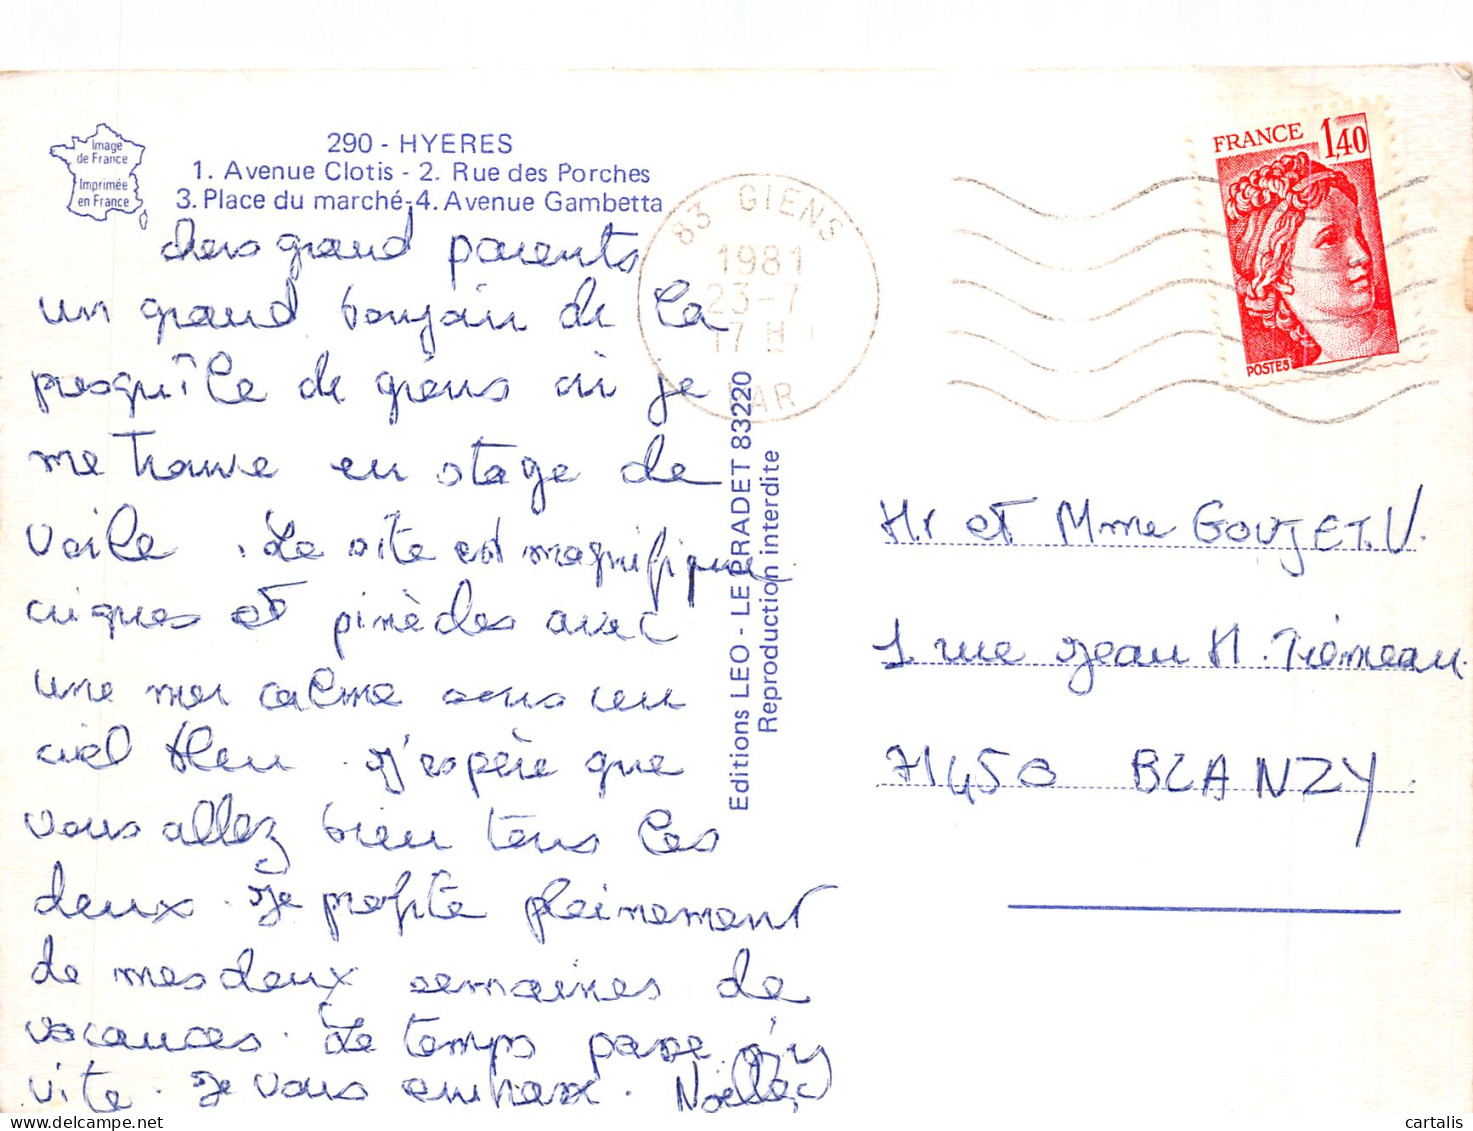 Image
de France
Imprimée
en France
290 - HYERES
1. Avenue Clotis - 2. Rue des Porches
3. Place du marché-4. Avenue Gambetta
chers grand parents
un grand bonjour de la
presqu'île de giens où je
me trouve en stage de
voile . Le site est magnifique
criques et pinèdes avec
une mer calme sous un
ciel bleu . J'espère que
vous allez bien tous les
deux . Je profite pleinement
de mes deux semaines de
vacances . Le temps passe
vite . Je vous embrasse . Noëlle
Editions LEO - LE PRADET 83220
Reproduction interdite
83 GIENS
1981
23-7
17 H
VAR
FRANCE 1,40
POSTES
Mr et Mme GOUJET.V.
1 rue Jean M.
71450 BLANZY.
cartalis